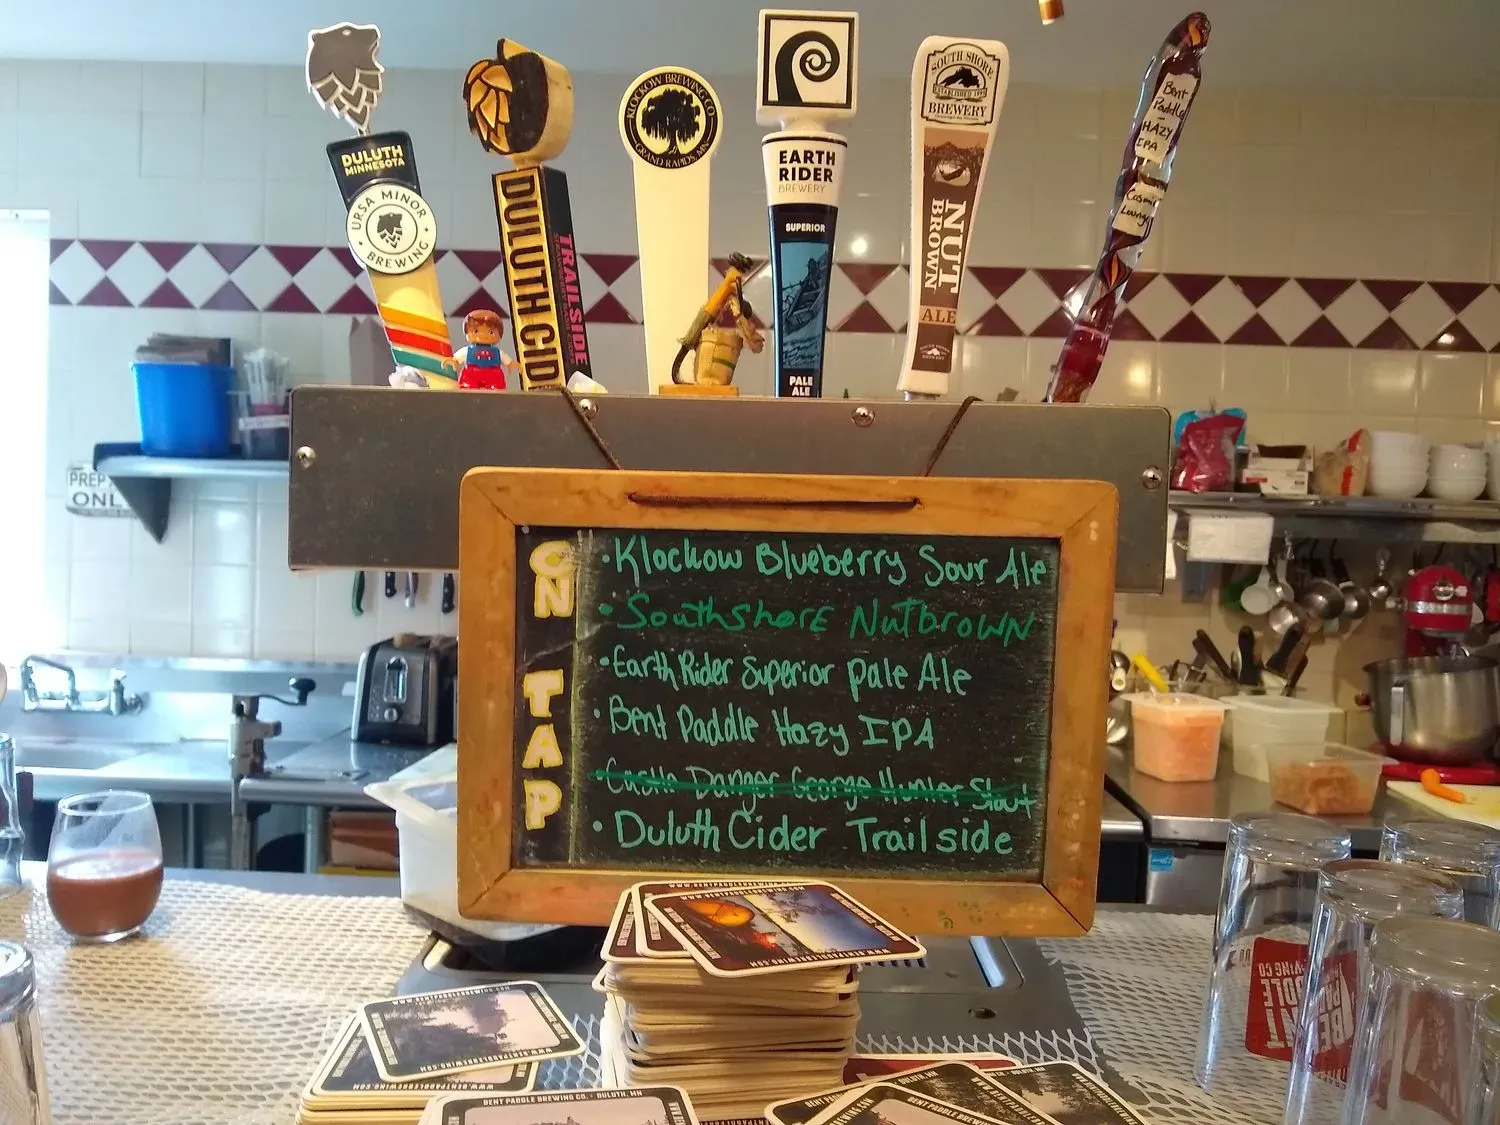 DULUTH
MINNESOTA
URSA MINOR
BREWING
DULUTH CID
TRAILSIDE
KLOCKOW BREWING CO
GRAND RAPIDS, MN
EARTH
RIDER
BREWERY
SUPERIOR
PALE
ALE
SOUTH SHORE
BREWERY
NUT
BROWN
ALE
Bent
Paddle
HAZY
IPA
Cosmic
Lounge
PREP
ONL
ON TAP
• Klockow Blueberry Sour Ale
• Southshore Nutbrown
• Earth Rider Superior Pale Ale
• Bent Paddle Hazy IPA
Castle Danger George Hunter Stout
• Duluth Cider Trailside
WWW.BENTPADDLEBREWING.COM
BENT PADDLE BREWING CO. • DULUTH, MN
BENT
PADDLE